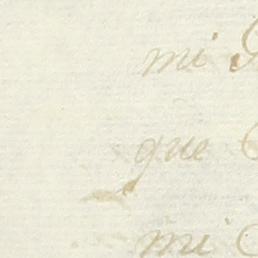 mi
que
mi